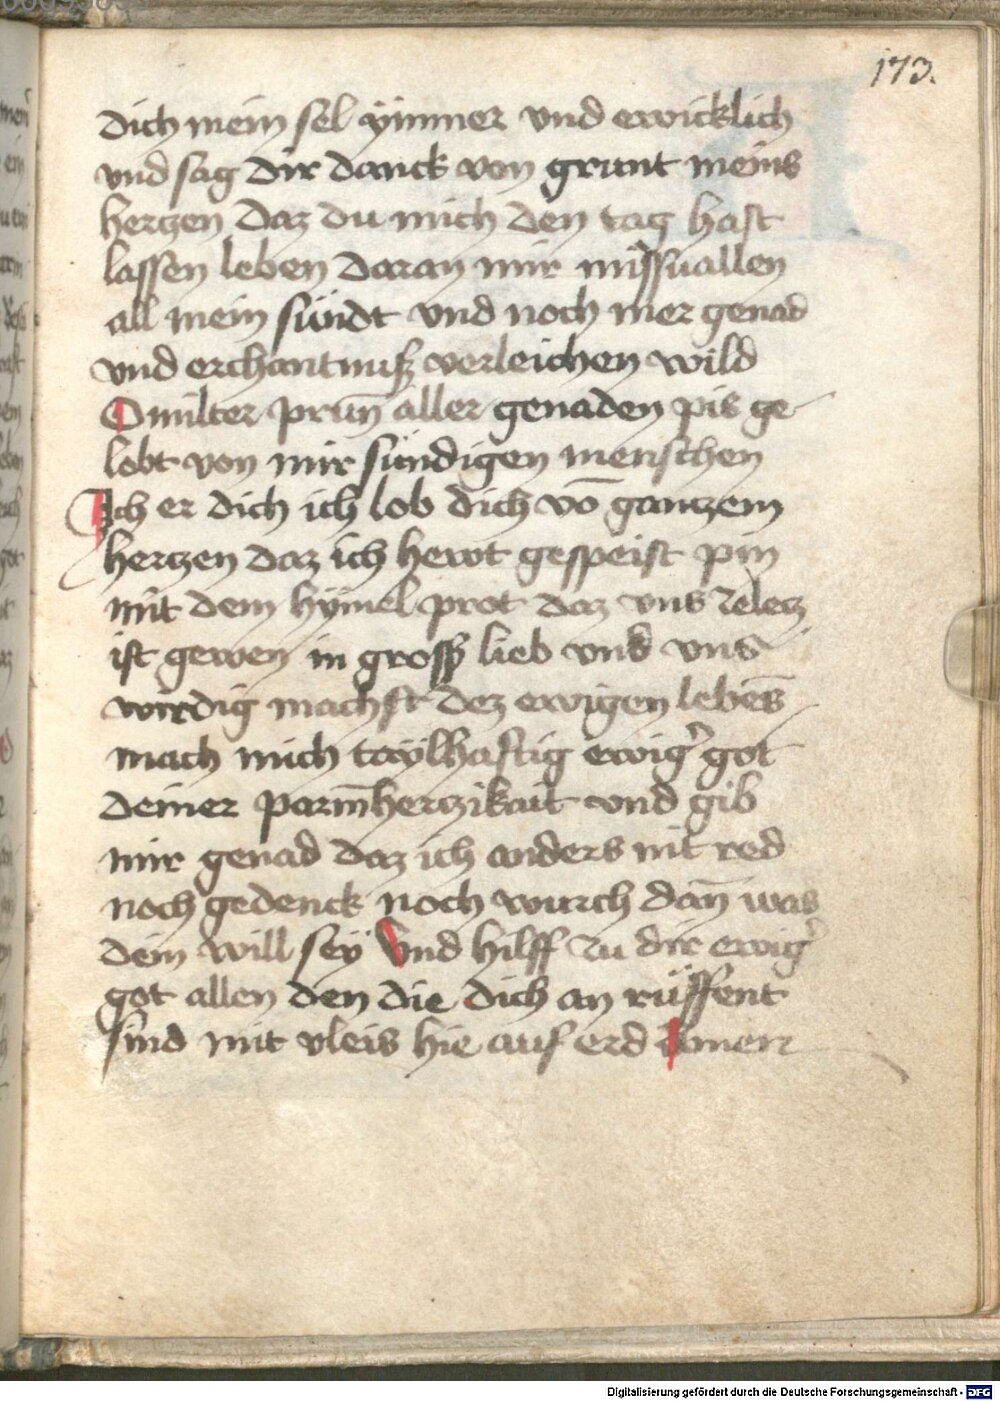 173.
dich mein sel ymmer vnd ewicklich
vnd sag dir danck von grunt meins
hertzen daz du mich den tag hast
lassen leben daran mir missuallen
all mein sündt vnd noch mer genad
vnd erchantnuß verleichen wild
O milter prun̄ aller genaden pis ge
lobt von mir sündigen menschen
Ich er dich ich lob dich vō gantzem
hertzen daz ich hewt gespeist pin
mit dem hymel prot daz vns zelecz
ist gewen in grosß lieb vnd vns
wirdig machst dez ewigen lebēs
mach mich taylhaftig ewig' got
deiner parm̄hertzikait vnd gib
mir genad daz ich anders nit red
noch gedenck noch wurch dan̄ was
dein will sey Vnd hilff zu dir ewig'
got allen den die dich an rüffent
sind mit vleis hie auf erd Amen
Digitalisierung gefördert durch die Deutsche Forschungsgemeinschaft - DFG